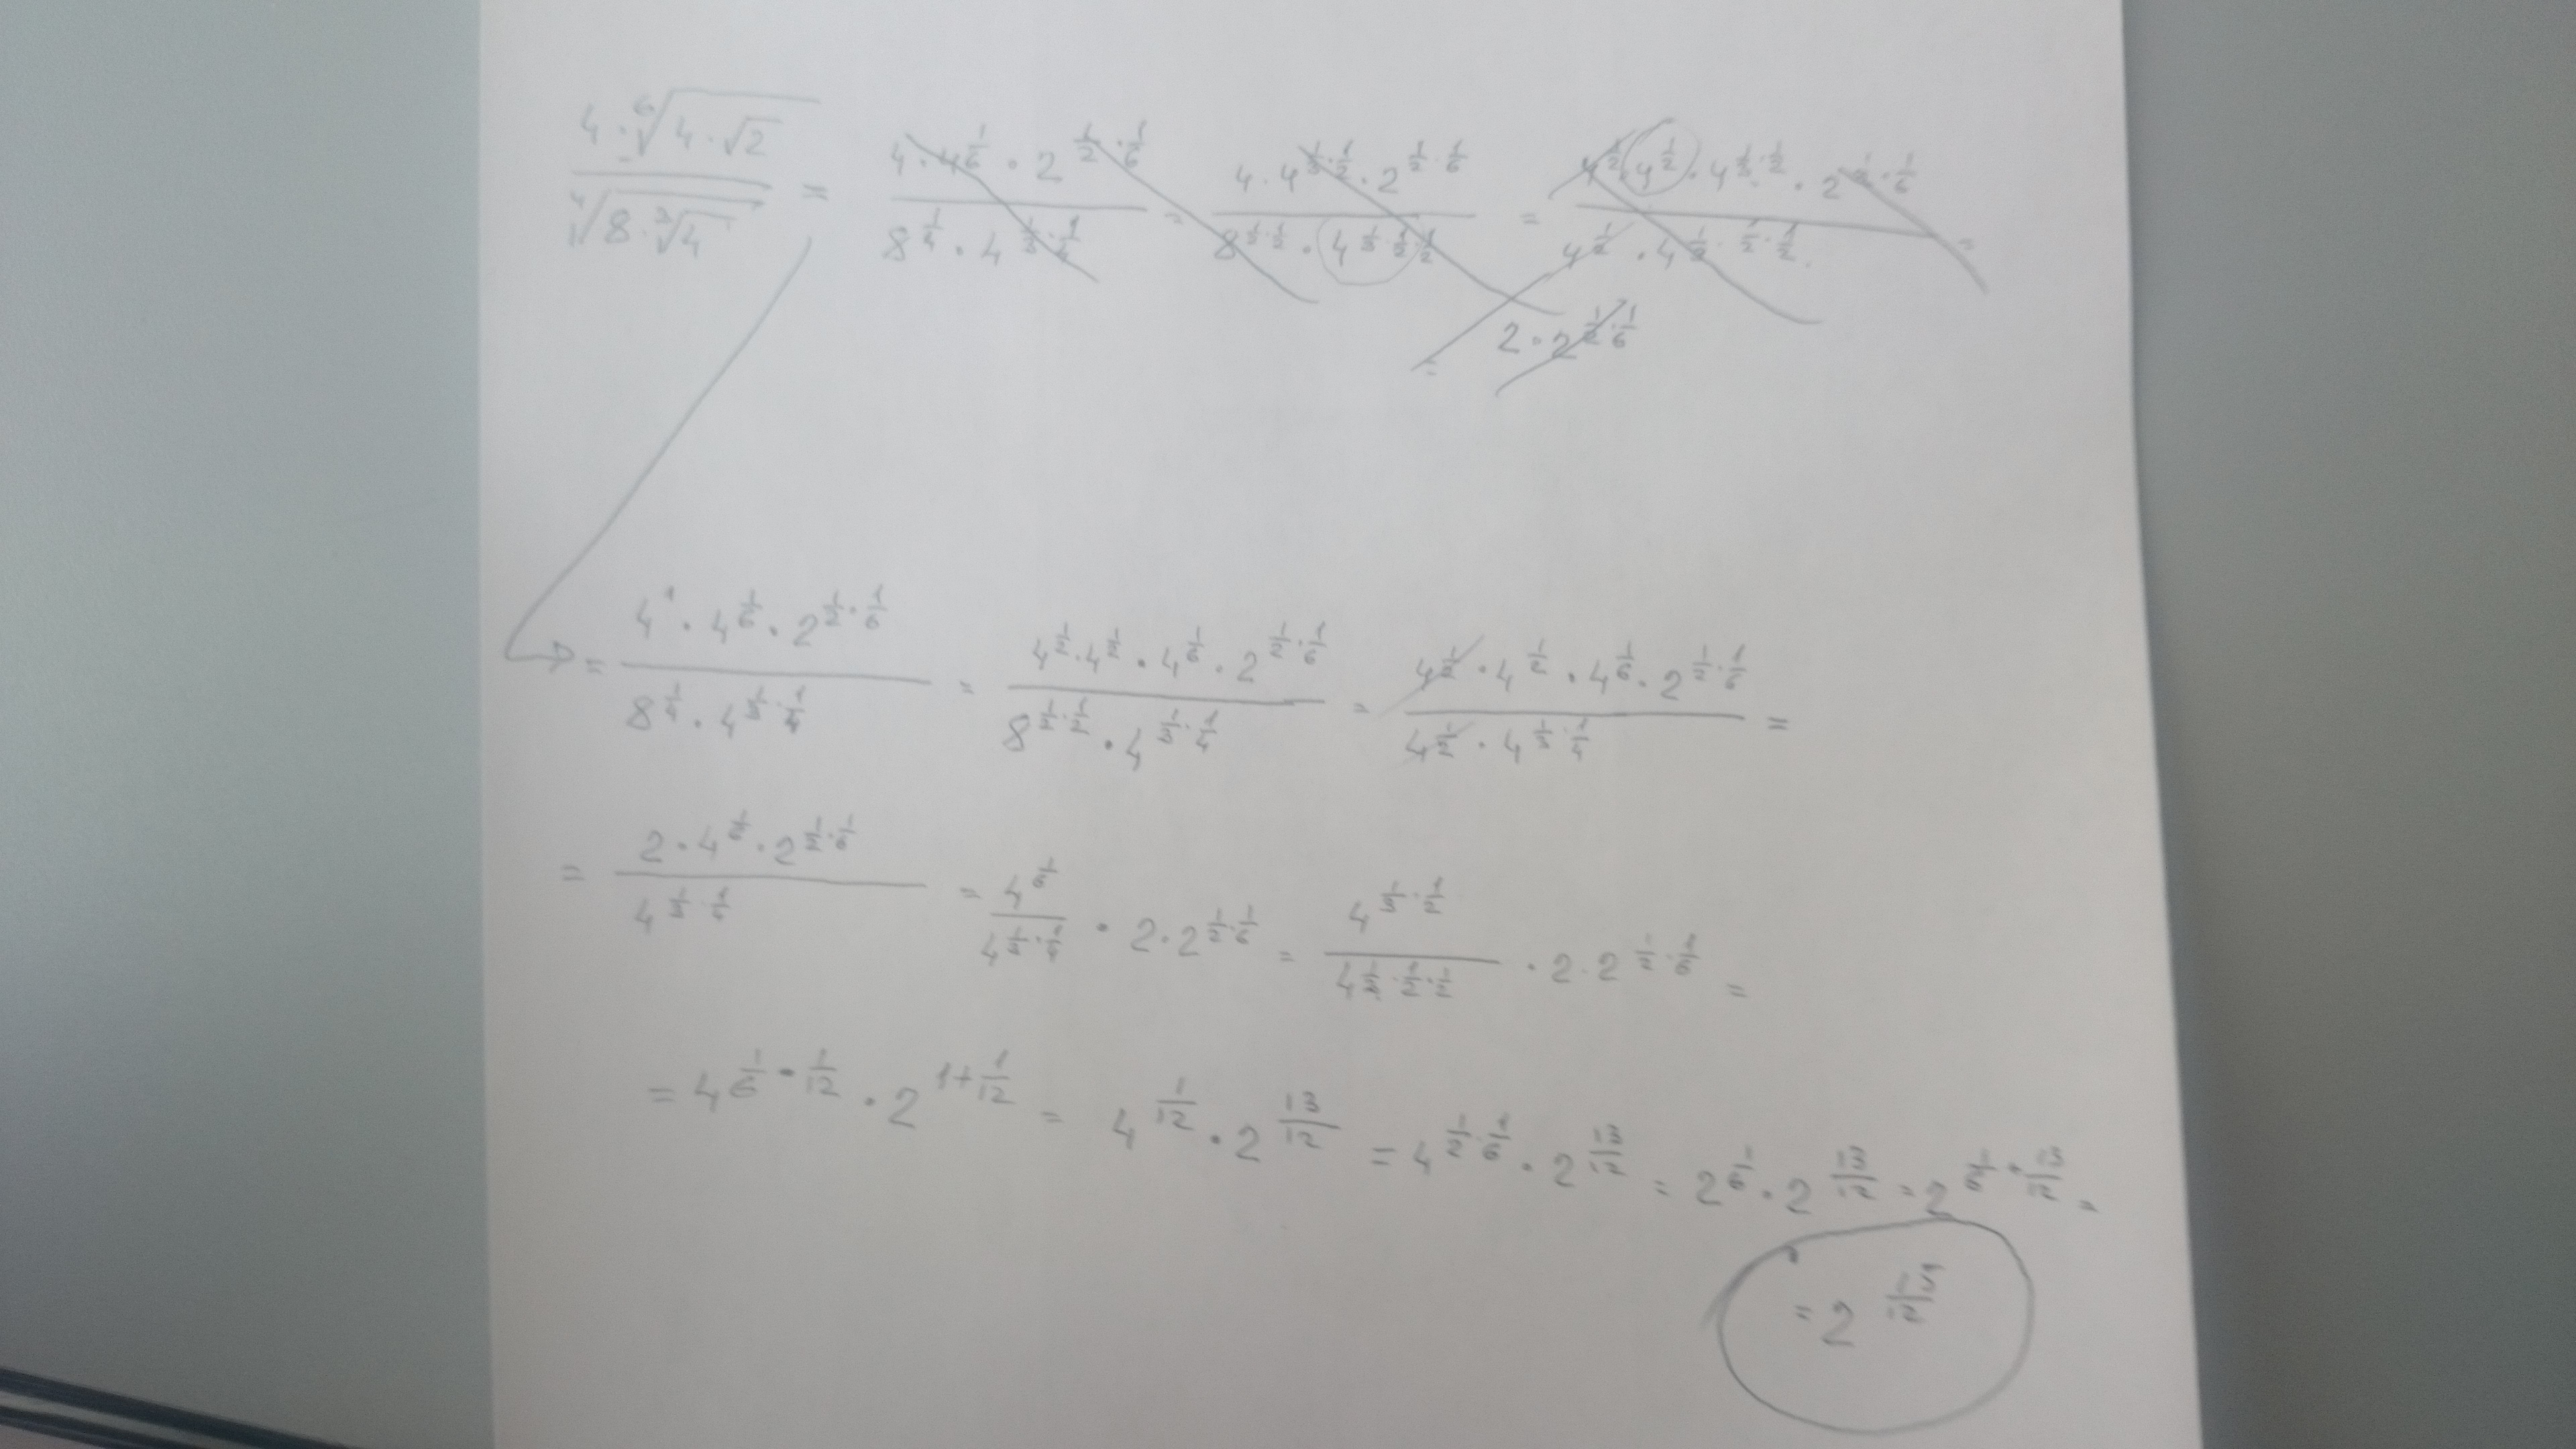 4 · ⁶√(4 · √2) / ⁴√(8 · ³√4) = 4 · 4^(1/6) · 2^(1/2 · 1/6) / 8^(1/4) · 4^(1/3 · 1/4) = 4 · 4^(1/3 · 1/2) · 2^(1/2 · 1/6) / 8^(1/2 · 1/2) · 4^(1/3 · 1/2 · 1/2) = 4^(1/2) · 4^(1/2) · 4^(1/3 · 1/2) · 2^(1/2 · 1/6) / 4^(1/2) · 4^(1/3 · 1/2 · 1/2) =
= 2 · 2^(1/2 · 1/6)
= 4^1 · 4^(1/6) · 2^(1/2 · 1/6) / 8^(1/4) · 4^(1/3 · 1/4) = 4^(1/2) · 4^(1/2) · 4^(1/6) · 2^(1/2 · 1/6) / 8^(1/2 · 1/2) · 4^(1/3 · 1/4) = 4^(1/2) · 4^(1/2) · 4^(1/6) · 2^(1/2 · 1/6) / 4^(1/2) · 4^(1/3 · 1/4) =
= 2 · 4^(1/6) · 2^(1/2 · 1/6) / 4^(1/3 · 1/4) = 4^(1/6) / 4^(1/3 · 1/4) · 2 · 2^(1/2 · 1/6) = 4^(1/3 · 1/2) / 4^(1/3 · 1/2 · 1/2) · 2 · 2^(1/2 · 1/6) =
= 4^(1/6 - 1/12) · 2^(1 + 1/12) = 4^(1/12) · 2^(13/12) = 4^(1/2 · 1/6) · 2^(13/12) = 2^(1/6) · 2^(13/12) = 2^(1/6 + 13/12) =
= 2^(15/12)